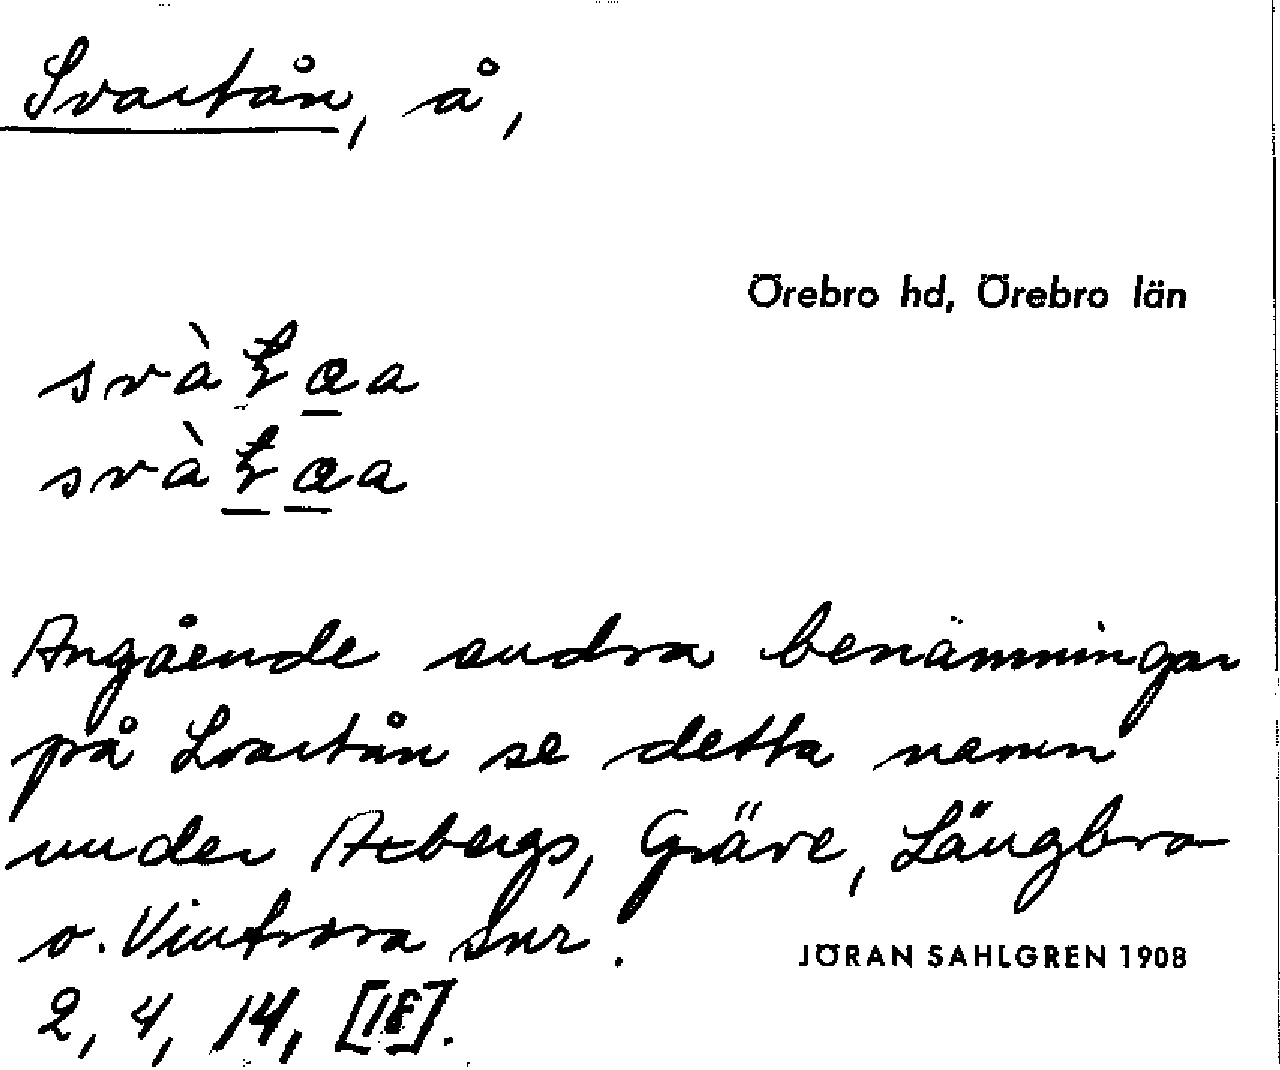 Svartån, å,
Örebro hd, Örebro län
Angående andra benämningar
på Svartån se detta namn
under Axbergs, Gräve, Längbro
o. Vintrosa snr.
JÖRAN SAHLGREN 1908
2, 4, 14, [18].